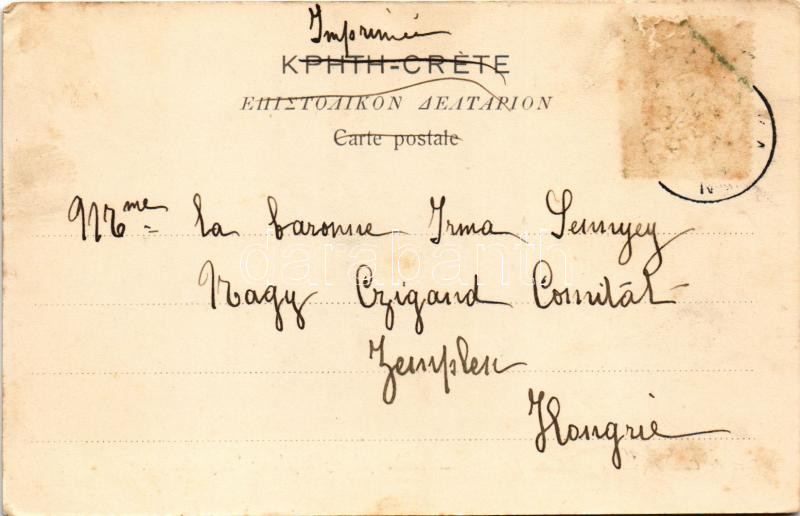 Imprimée
ΚΡΗΤΗ-CRÈTE
ΕΠΙΣΤΟΛΙΚΟΝ ΔΕΛΤΑΡΙΟΝ
Carte postale
Mme la baronne Irma Sennyey
darabanth
Nagy Czigand Comitát
Zemplen
Hongrie